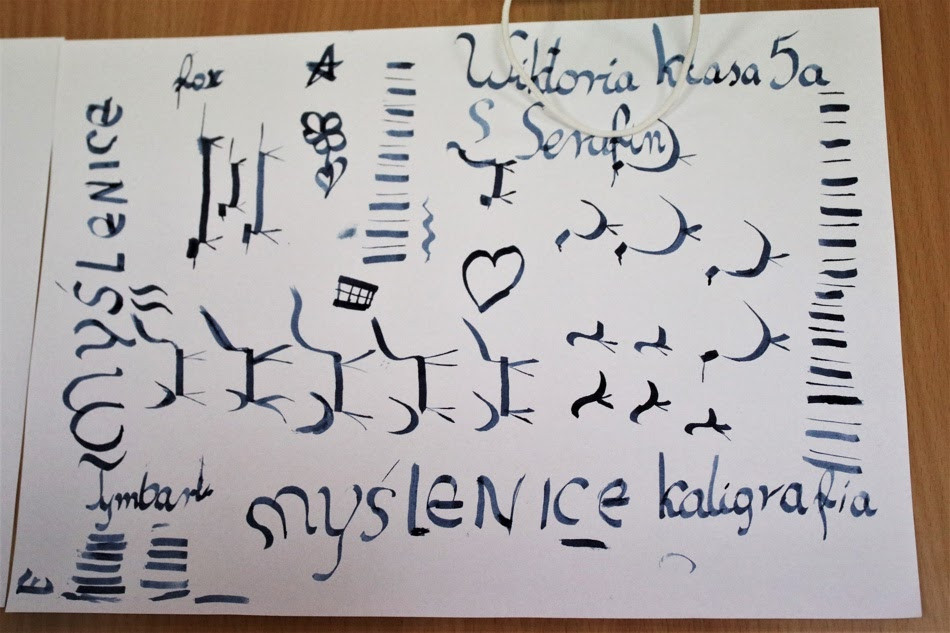 Wiktoria klasa 5a
S Serafin
fox
MYŚLENICE
Tymbark
MYŚLENICE kaligrafia
E